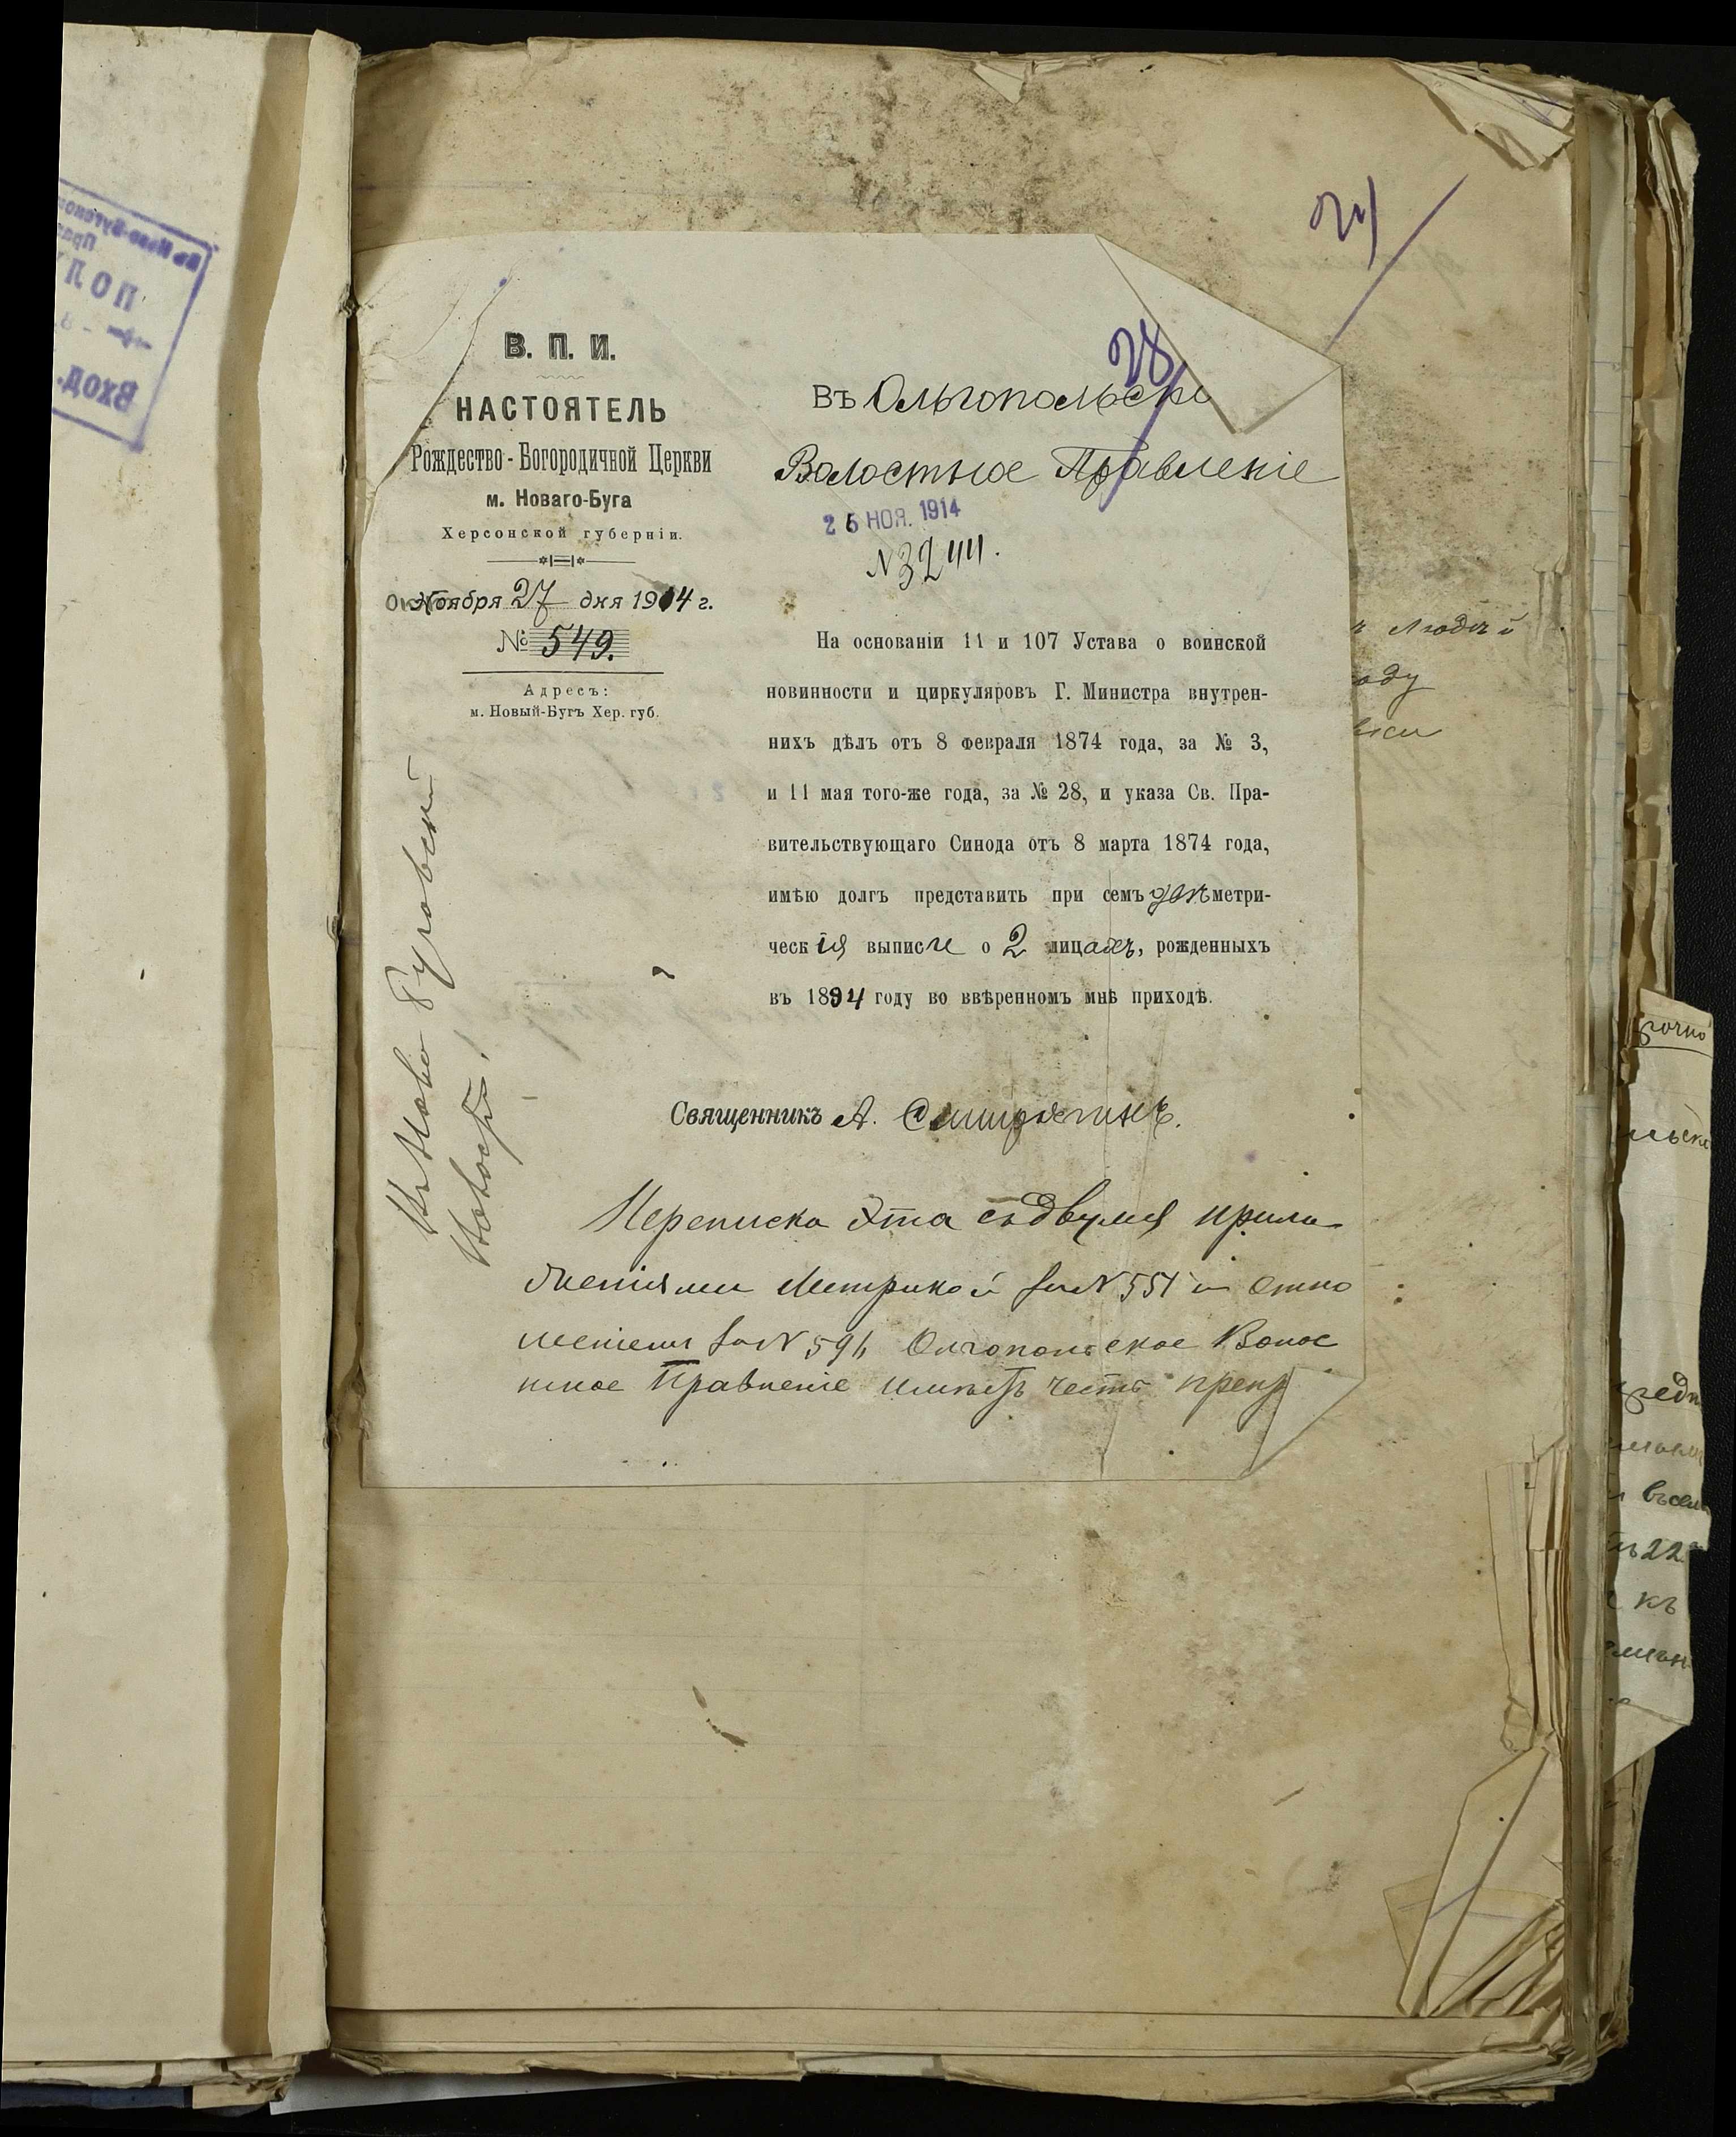 24
28
В. П. И.
НАСТОЯТЕЛЬ
Рождество-Богородичной Церкви
м. Новаго-Буга
Херсонской губерніи.
Октября 27 дня 1914 г.
№ 549.
Адресъ:
м. Новый-Бугъ Хер. губ.
Въ Ольгопольско
Волостное Правленіе
26 НОЯ. 1914
N 3244.
На основаніи 11 и 107 Устава о воинской
новинности и циркуляровъ Г. Министра внутрен-
нихъ дѣлъ отъ 8 февраля 1874 года, за № 3,
и 11 мая того-же года, за № 28, и указа Св. Пра-
вительствующаго Синода отъ 8 марта 1874 года,
имѣю долгъ представить при семъ метри-
ческія выписи о 2 лицахъ, рожденныхъ
въ 1894 году во ввѣренномъ мнѣ приходѣ.
Священникъ А.
Переписка эта съ двумя прило
женіями Метрикой за N 551 и отно
шеніем за N 596 Ольгопольское Волос
тное Правленіе имѣетъ честь преп
Въ Ново Бугский
ВХОД.
людей
оду
22
къ